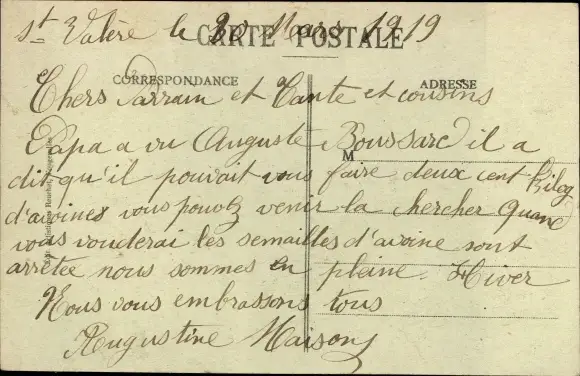 St Valère le 20 Mars 1919
CARTE POSTALE
CORRESPONDANCE
ADRESSE
Chers Parrain et Tante et cousins
Papa a vu Auguste Boussard il a
M
dit qu'il pouvait vous faire deux cent kilog
d'avoines vous pouvez venir la chercher quand
vous vouderai les semailles d'avoine sont
arretée nous sommes en pleine Hiver
Nous vous embrassons tous
Augustine Maison